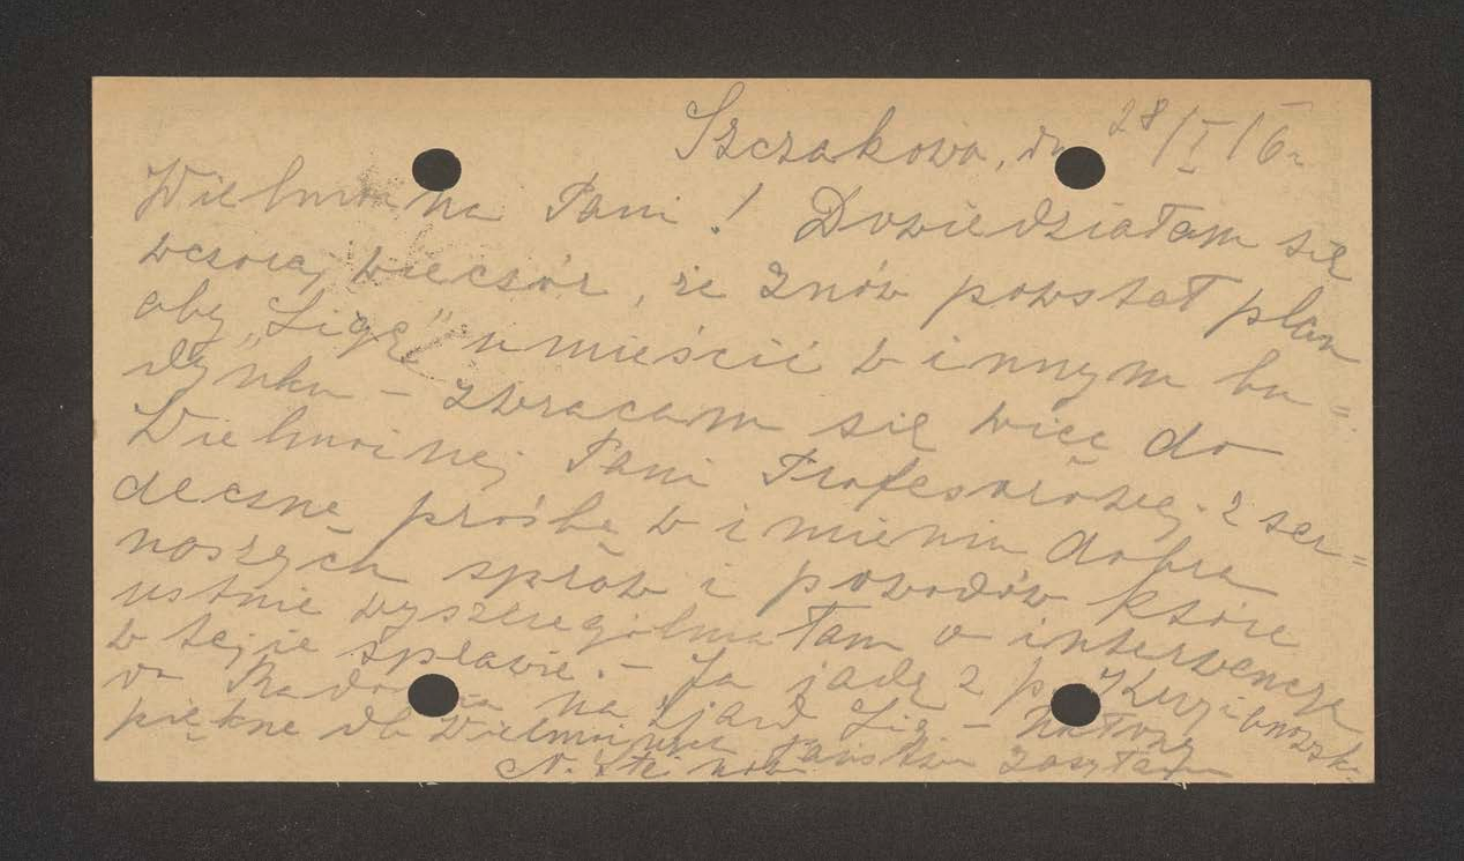 Szczakowa, dn 28/I 16.
Wielmożna Pani! Dowiedziałam się
wczoraj wieczór, że znów powstał plan
aby „Ligę” umieścić w innym bu=
dynku – zwracam się więc do
Wielmożnej Pani Profesorowej z ser=
deczną prośbą w imieniu dobra
naszych spraw i powodów które
ustnie wyszczególniałam o interwencję
w tejże sprawie. – Ja jadę z p.
do Radomia na zjazd Lig –
piękne dla Wielmożnych Państwa zasyłam
N.